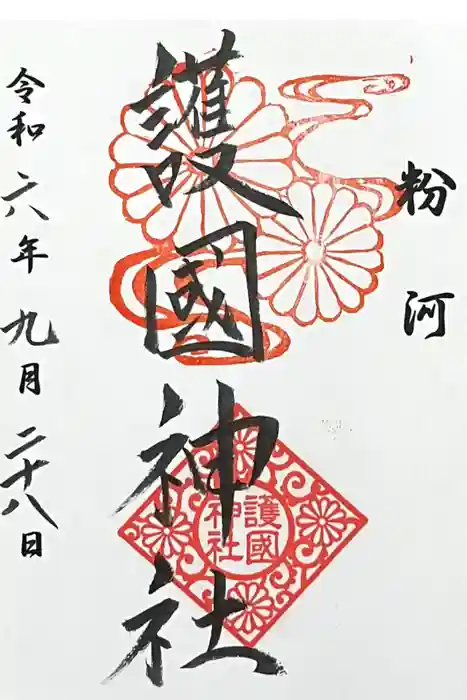 粉河
護國神社
護國
神社
令和六年九月二十八日